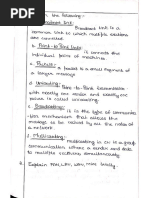 the following:
Broadcast link:
Broadcast link is a
common link to which multiple stations
are connected.
Point-to-Point link:
It connects the
individual pairs of machine.
Packet:
A packet is a small segment of
a longer message
Unicasting: Point-to-Point transmission
with exactly one sender and exactly one
is called unicasting.
Broadcasting:
It is the type of communica-
tion mechanism that allows the
message, to be received by all the nodes of
a network.
Multicasting:
Multicasting is a group
communication, where a sender send data
to multiple receivers simultaneously.
4. Explain PAN, LAN, WAN, MAN briefly.